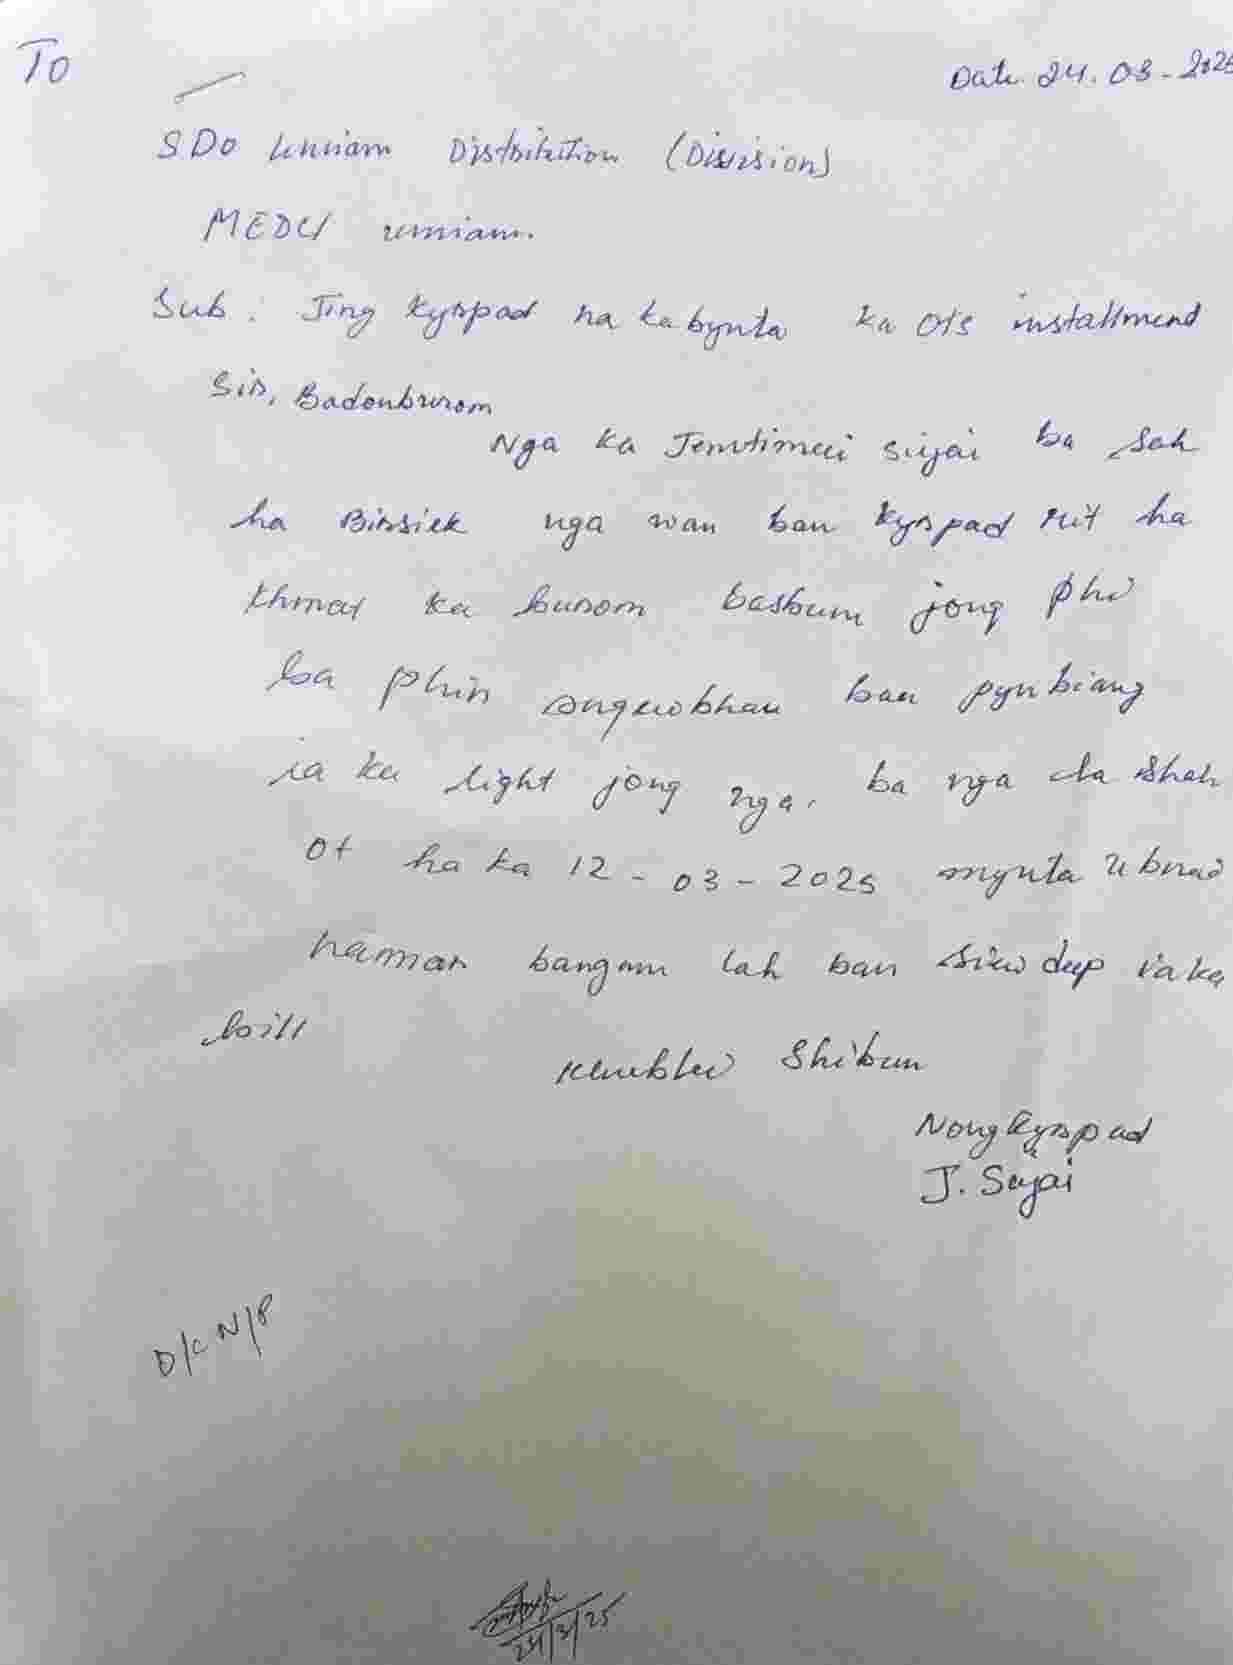 To
Date. 24.03-2025
SDO Umiam Distribution (Division)
MEDCl umiam.
Sub: Jing kyrpad na kabynta ka ots installmend
Sir, Badonburom
Nga ka Jemtimai sujai ba sah
ha Birsiek nga wan ban kyrpad rit ha
khmat ka burom basbun jong phi
ba phin sngewbhau ban pynbiang
ia ka light jong nga. ba nga la shah
ot ha ka 12-03-2025 mynta u bnai
namar bangam lah ban siew dup iaka
bill
Khublei Shibun
Nongkyrpad
J. Sujai
D/c N/P
24/3/25